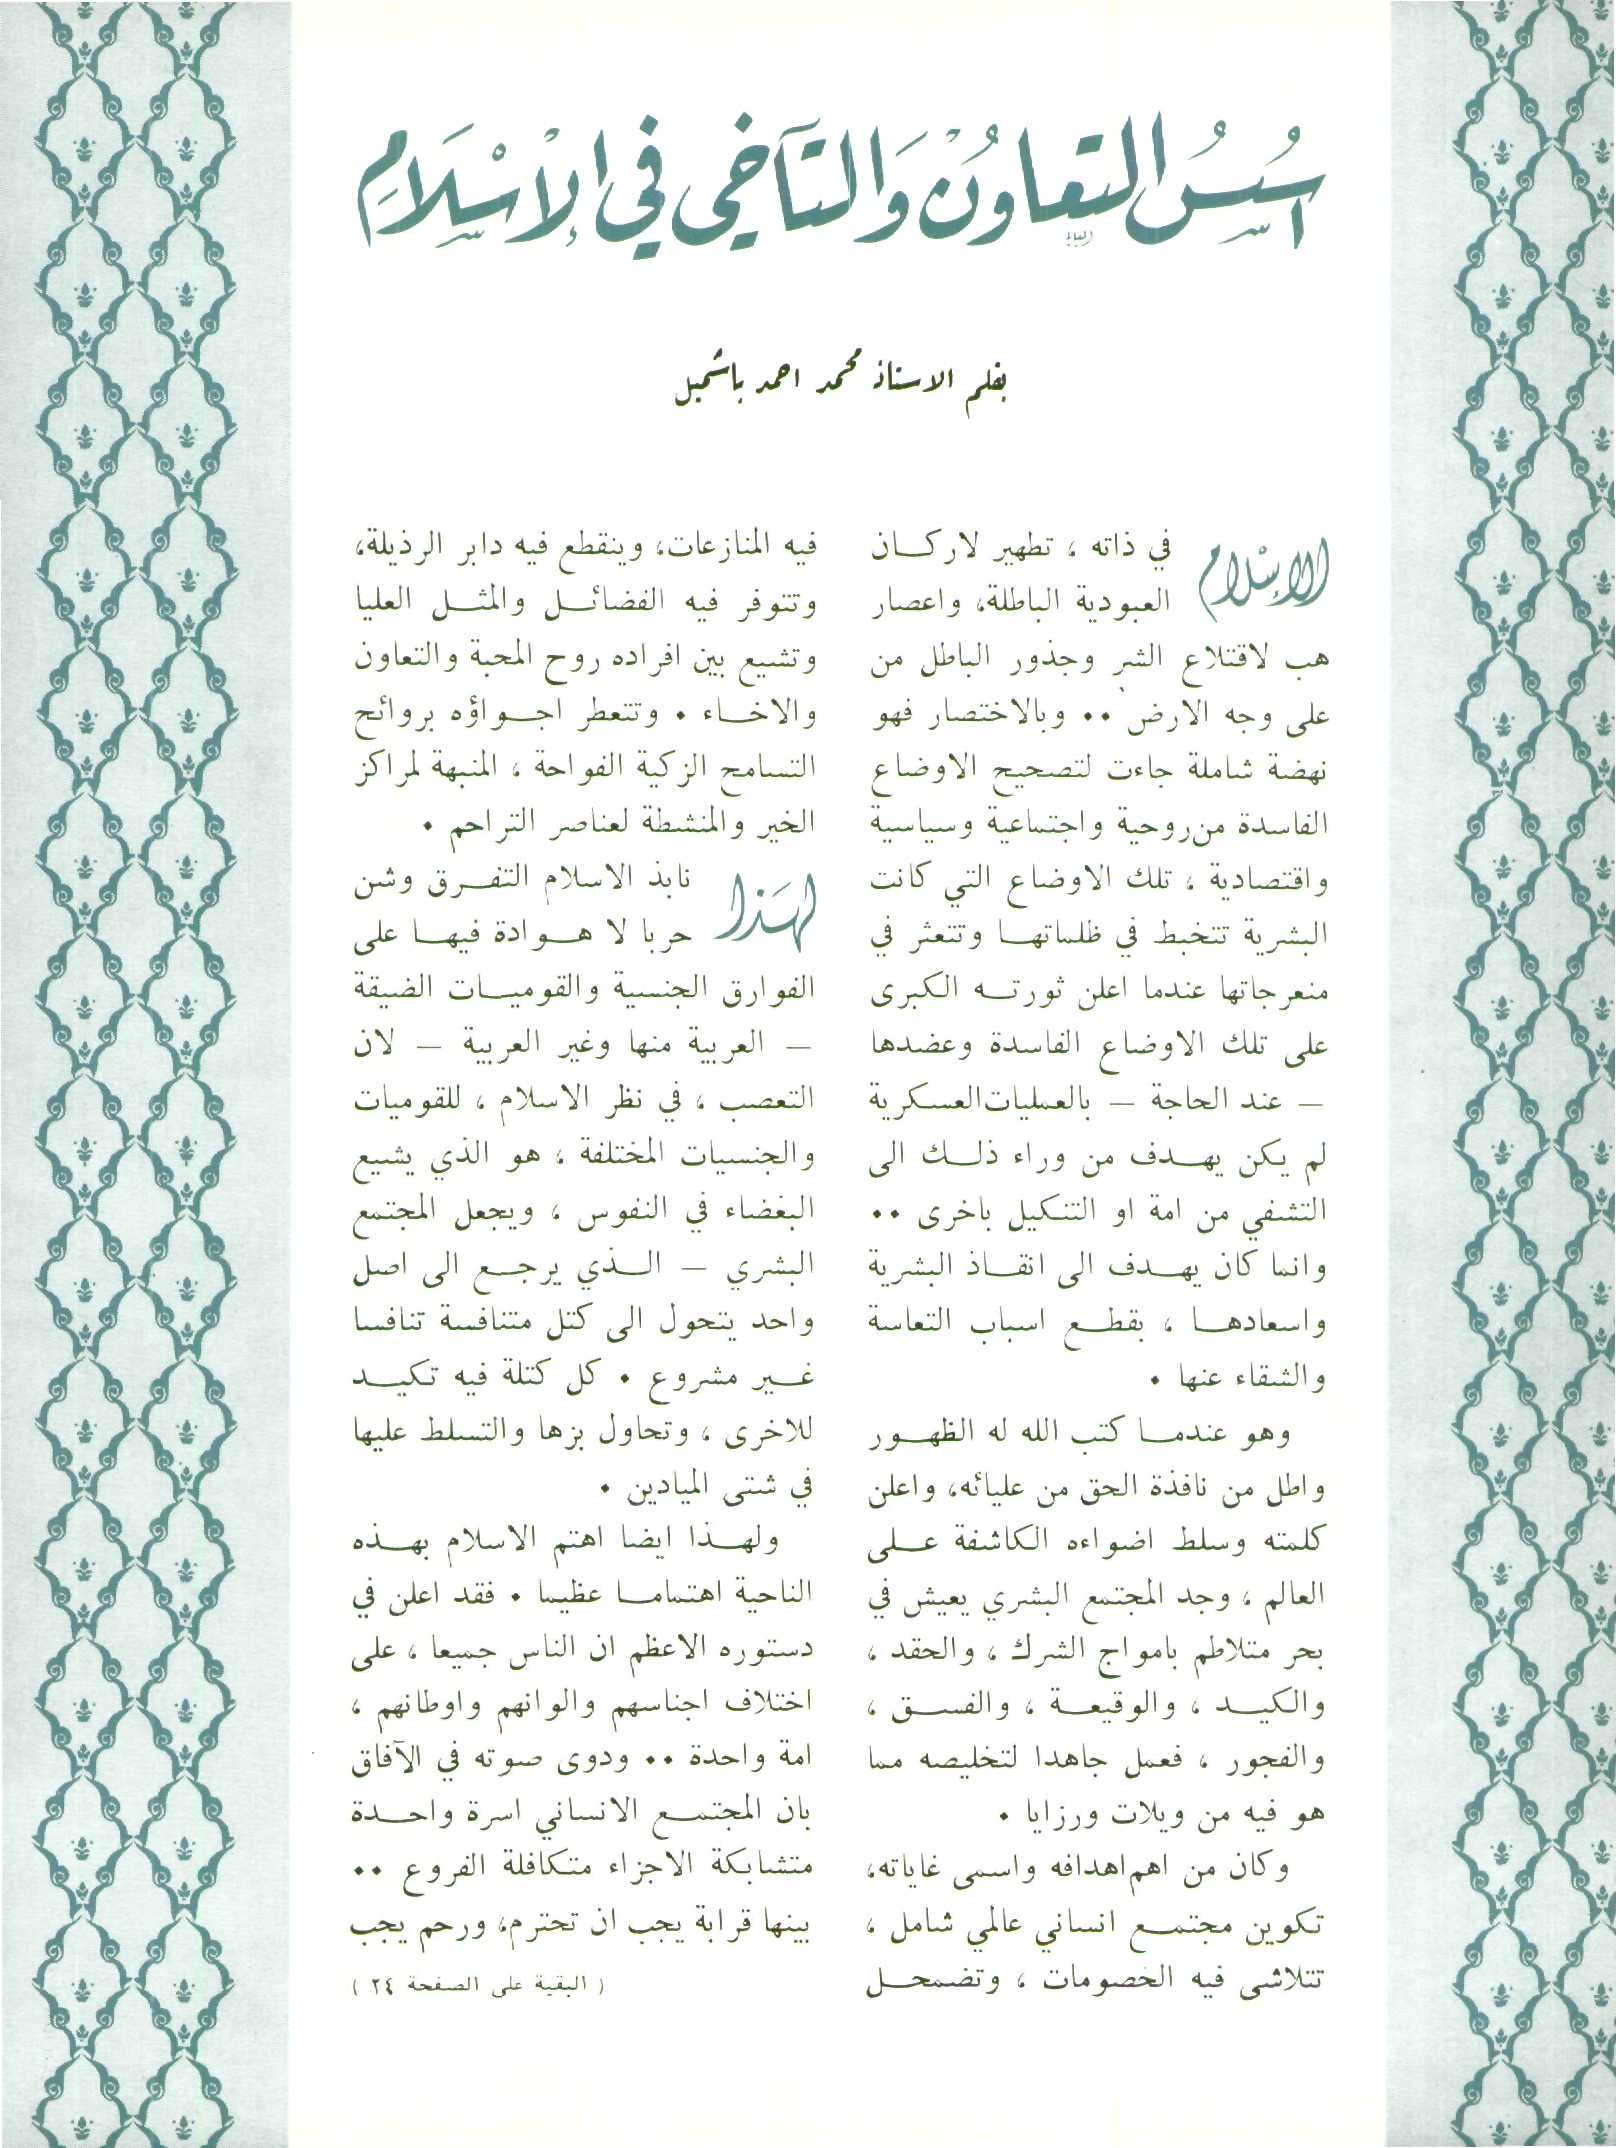 اسُسُ التعاوُنْ وَالتآخي في الإسْلَامِ
بقلم الاستاذ محمد احمد باشميل
الإسْلام في ذاته ، تطهير لاركان
العبودية الباطلة، واعصار
هب لاقتلاع الشر وجذور الباطل من
على وجه الارض ٠٠ وبالاختصار فهو
نهضة شاملة جاءت لتصحيح الاوضاع
الفاسدة من روحية واجتماعية وسياسية
واقتصادية ، تلك الاوضاع التي كانت
البشرية تتخبط في ظلماتها وتتعثر في
منعرجاتها عندما اعلن ثورته الكبرى
على تلك الاوضاع الفاسدة وعضدها
– عند الحاجة – بالعمليات العسكرية
لم يكن يهدف من وراء ذلك الى
التشفي من امة او التنكيل باخرى ٠٠
وانما كان يهدف الى انقاذ البشرية
واسعادها ، بقطع اسباب التعاسة
والشقاء عنها ٠
وهو عندما كتب الله له الظهور
واطل من نافذة الحق من عليائه، واعلن
كلمته وسلط اضواءه الكاشفة على
العالم ، وجد المجتمع البشري يعيش في
بحر متلاطم بامواج الشرك ، والحقد ،
والكيد ، والوقيعة ، والفسق ،
والفجور ، فعمل جاهدا لتخليصه مما
هو فيه من ويلات ورزايا ٠
وكان من اهم اهدافه واسمى غاياته،
تكوين مجتمع انساني عالمي شامل ،
تتلاشى فيه الخصومات ، وتضمحل
فيه المنازعات، وينقطع فيه دابر الرذيلة،
وتتوفر فيه الفضائل والمثل العليا
وتشيع بين افراده روح المحبة والتعاون
والاخاء ٠ وتتعطر اجواؤه بروائح
التسامح الزكية الفواحة ، المنبهة لمراكز
الخير والمنشطة لعناصر التراحم ٠
لهَذا نابذ الاسلام التفرق وشن
حربا لا هوادة فيها على
الفوارق الجنسية والقوميات الضيقة
– العربية منها وغير العربية – لان
التعصب ، في نظر الاسلام ، للقوميات
والجنسيات المختلفة ، هو الذي يشيع
البغضاء في النفوس ، ويجعل المجتمع
البشري – الذي يرجع الى اصل
واحد يتحول الى كتل متنافسة تنافسا
غير مشروع ٠ كل كتلة فيه تكيد
للاخرى ، وتحاول بزها والتسلط عليها
في شتى الميادين ٠
ولهذا ايضا اهتم الاسلام بهذه
الناحية اهتماما عظيما ٠ فقد اعلن في
دستوره الاعظم ان الناس جميعا ، على
اختلاف اجناسهم والوانهم واوطانهم ،
امة واحدة ٠٠ ودوى صوته في الآفاق
بان المجتمع الانساني اسرة واحدة
متشابكة الاجزاء متكافلة الفروع ٠٠
بينها قرابة يجب ان تحترم، ورحم يجب
( البقية على الصفحة ٢٤ )